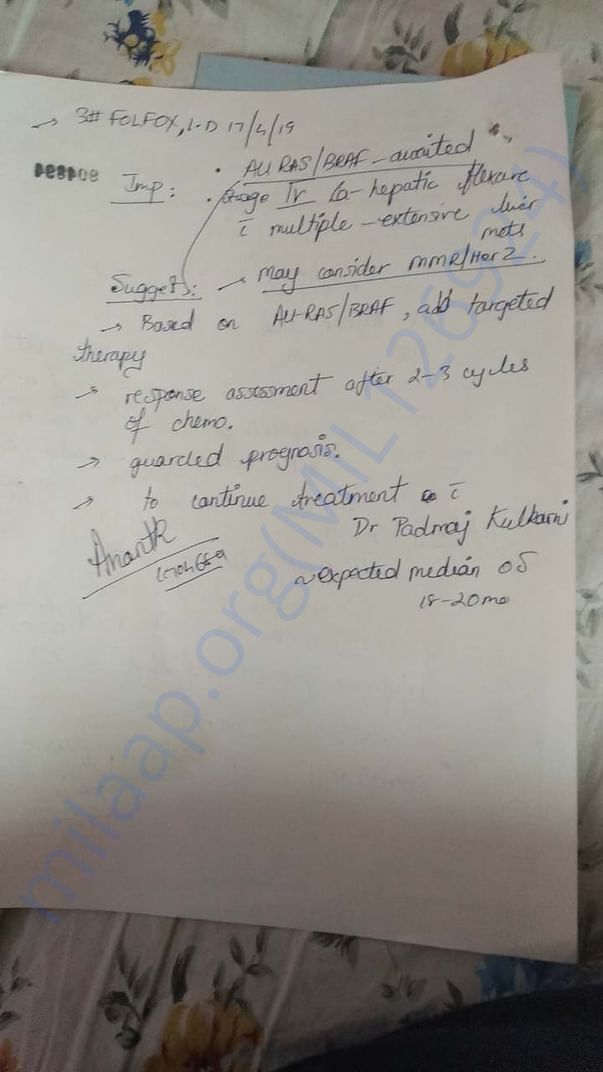 → 3# FOLFOX, L-D 17/4/19
Imp: • All RAS/BRAF - awaited
• Stage IV Ca - hepatic flexure
c̄ multiple - extensive liver
mets
Suggest: → may consider MMR/Her2.
→ Based on All-RAS/BRAF, add targeted
therapy
→ response assessment after 2-3 cycles
of chemo.
→ guarded prognosis.
→ to continue treatment c̄
Dr Padmaj Kulkarni
~expected median OS
18-20mo
milaap.org(MIL126924)